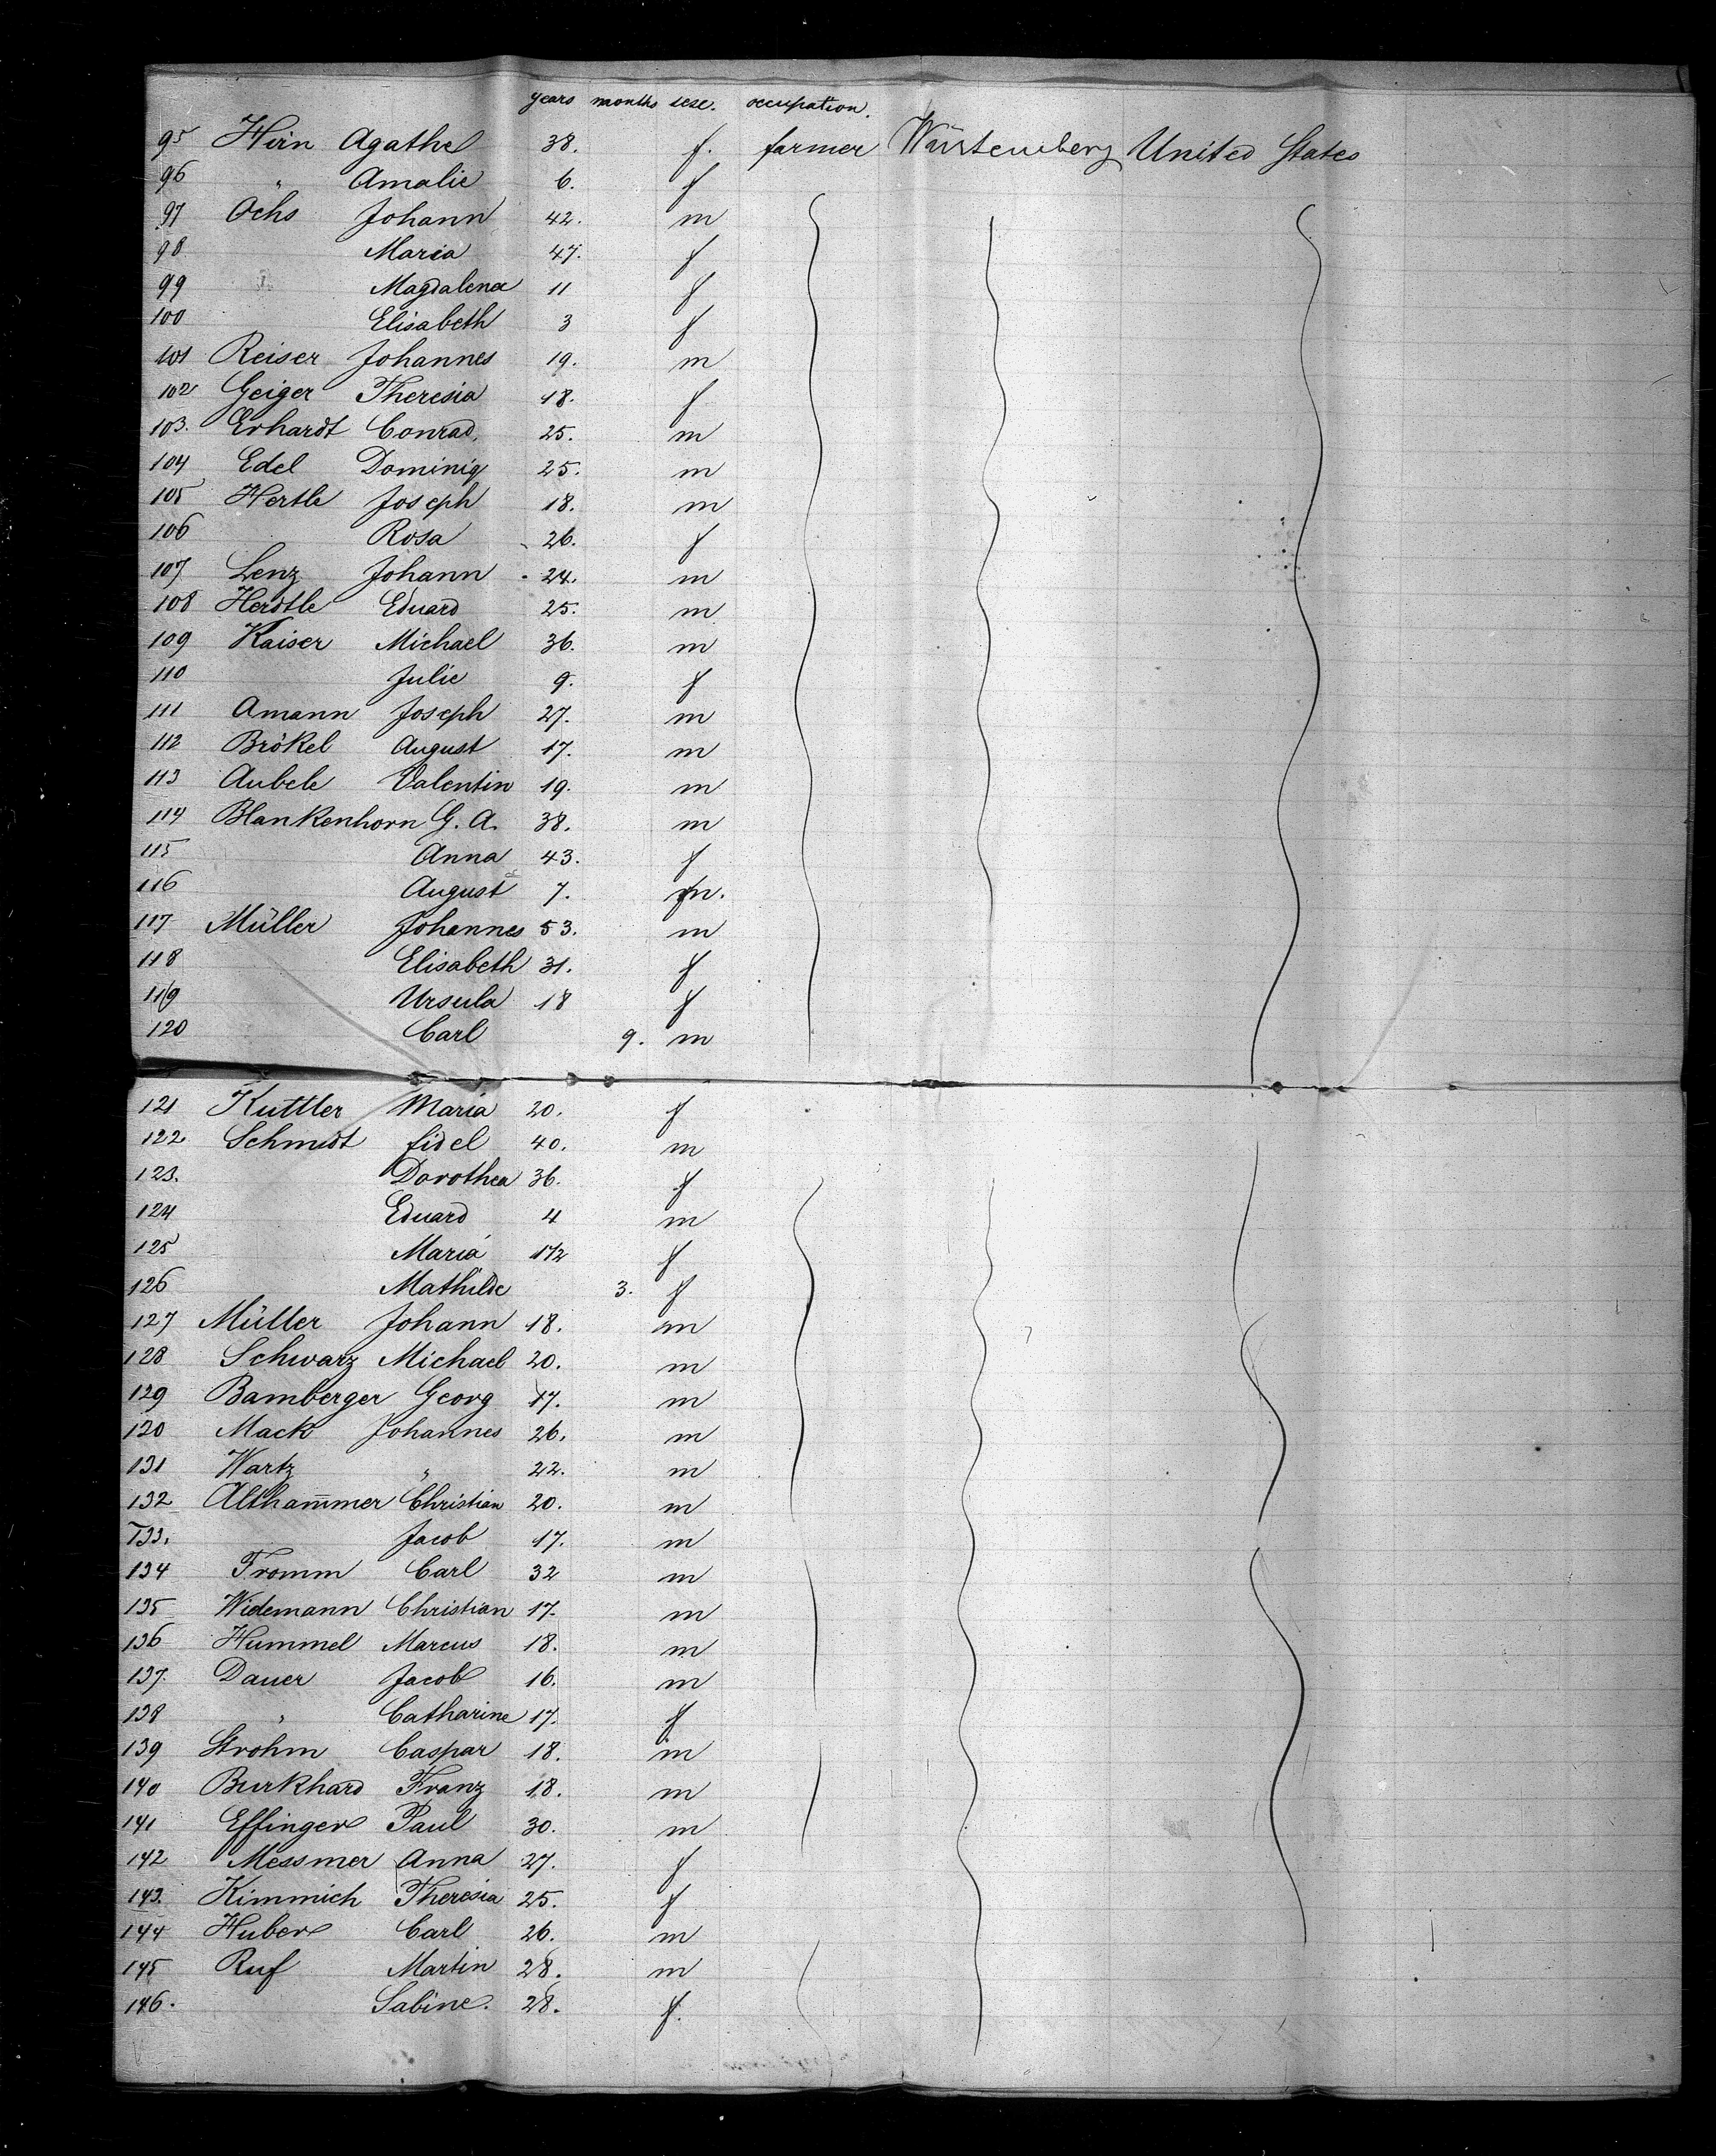 years months sexe. occupation.
95 Hirn Agathe 38. f. farmer Würtemberg United States
96 " Amalie 6. f
97 Ochs Johann 42. m
98 Maria 47. f
99 Magdalena 11 f
100 Elisabeth 3 f
101 Reiser Johannes 19. m
102 Geiger Theresia 18. f
103. Erhardt Conrad. 25. m
104 Edel Dominiq 25. m
105 Hertle Joseph 18. m
106 Rosa 26. f
107 Lenz Johann 24. m
108 Herdtle Eduard 25. m
109 Kaiser Michael 36. m
110 Julie 9. f
111 Amann Joseph 27. m
112 Brökel August 17. m
113 Aubele Valentin 19. m
114 Blankenhorn G. A. 38. m
115 Anna 43. f
116 August 7. m.
117 Müller Johannes 53. m
118 Elisabeth 31. f
119 Ursula 18 f
120 Carl 9. m
121 Kuttler Maria 20. f
122 Schmidt fidel 40. m
123. Dorothea 36. f
124 Eduard 4 m
125 Maria 1 1/2 f
126 Mathilde 3. f
127 Müller Johann 18. m
128 Schwarz Michael 20. m
129 Bamberger Georg 17. m
130 Mack Johannes 26. m
131 Wartz " 22. m
132 Altham̅mer Christian 20. m
133. Jacob 17. m
134 Fromm Carl 32 m
135 Widemann Christian 17. m
136 Hummel Marcus 18. m
137. Dauer Jacob 16. m
138 " Catharine 17. f
139 Strohm Caspar 18. m
140 Burkhard Franz 18. m
141 Effinger Paul 30. m
142 Messmer Anna 27. f
143. Kimmich Theresia 25. f
144 Huber Carl 26. m
145 Ruf Martin 28. m
146. Sabine. 28. f.